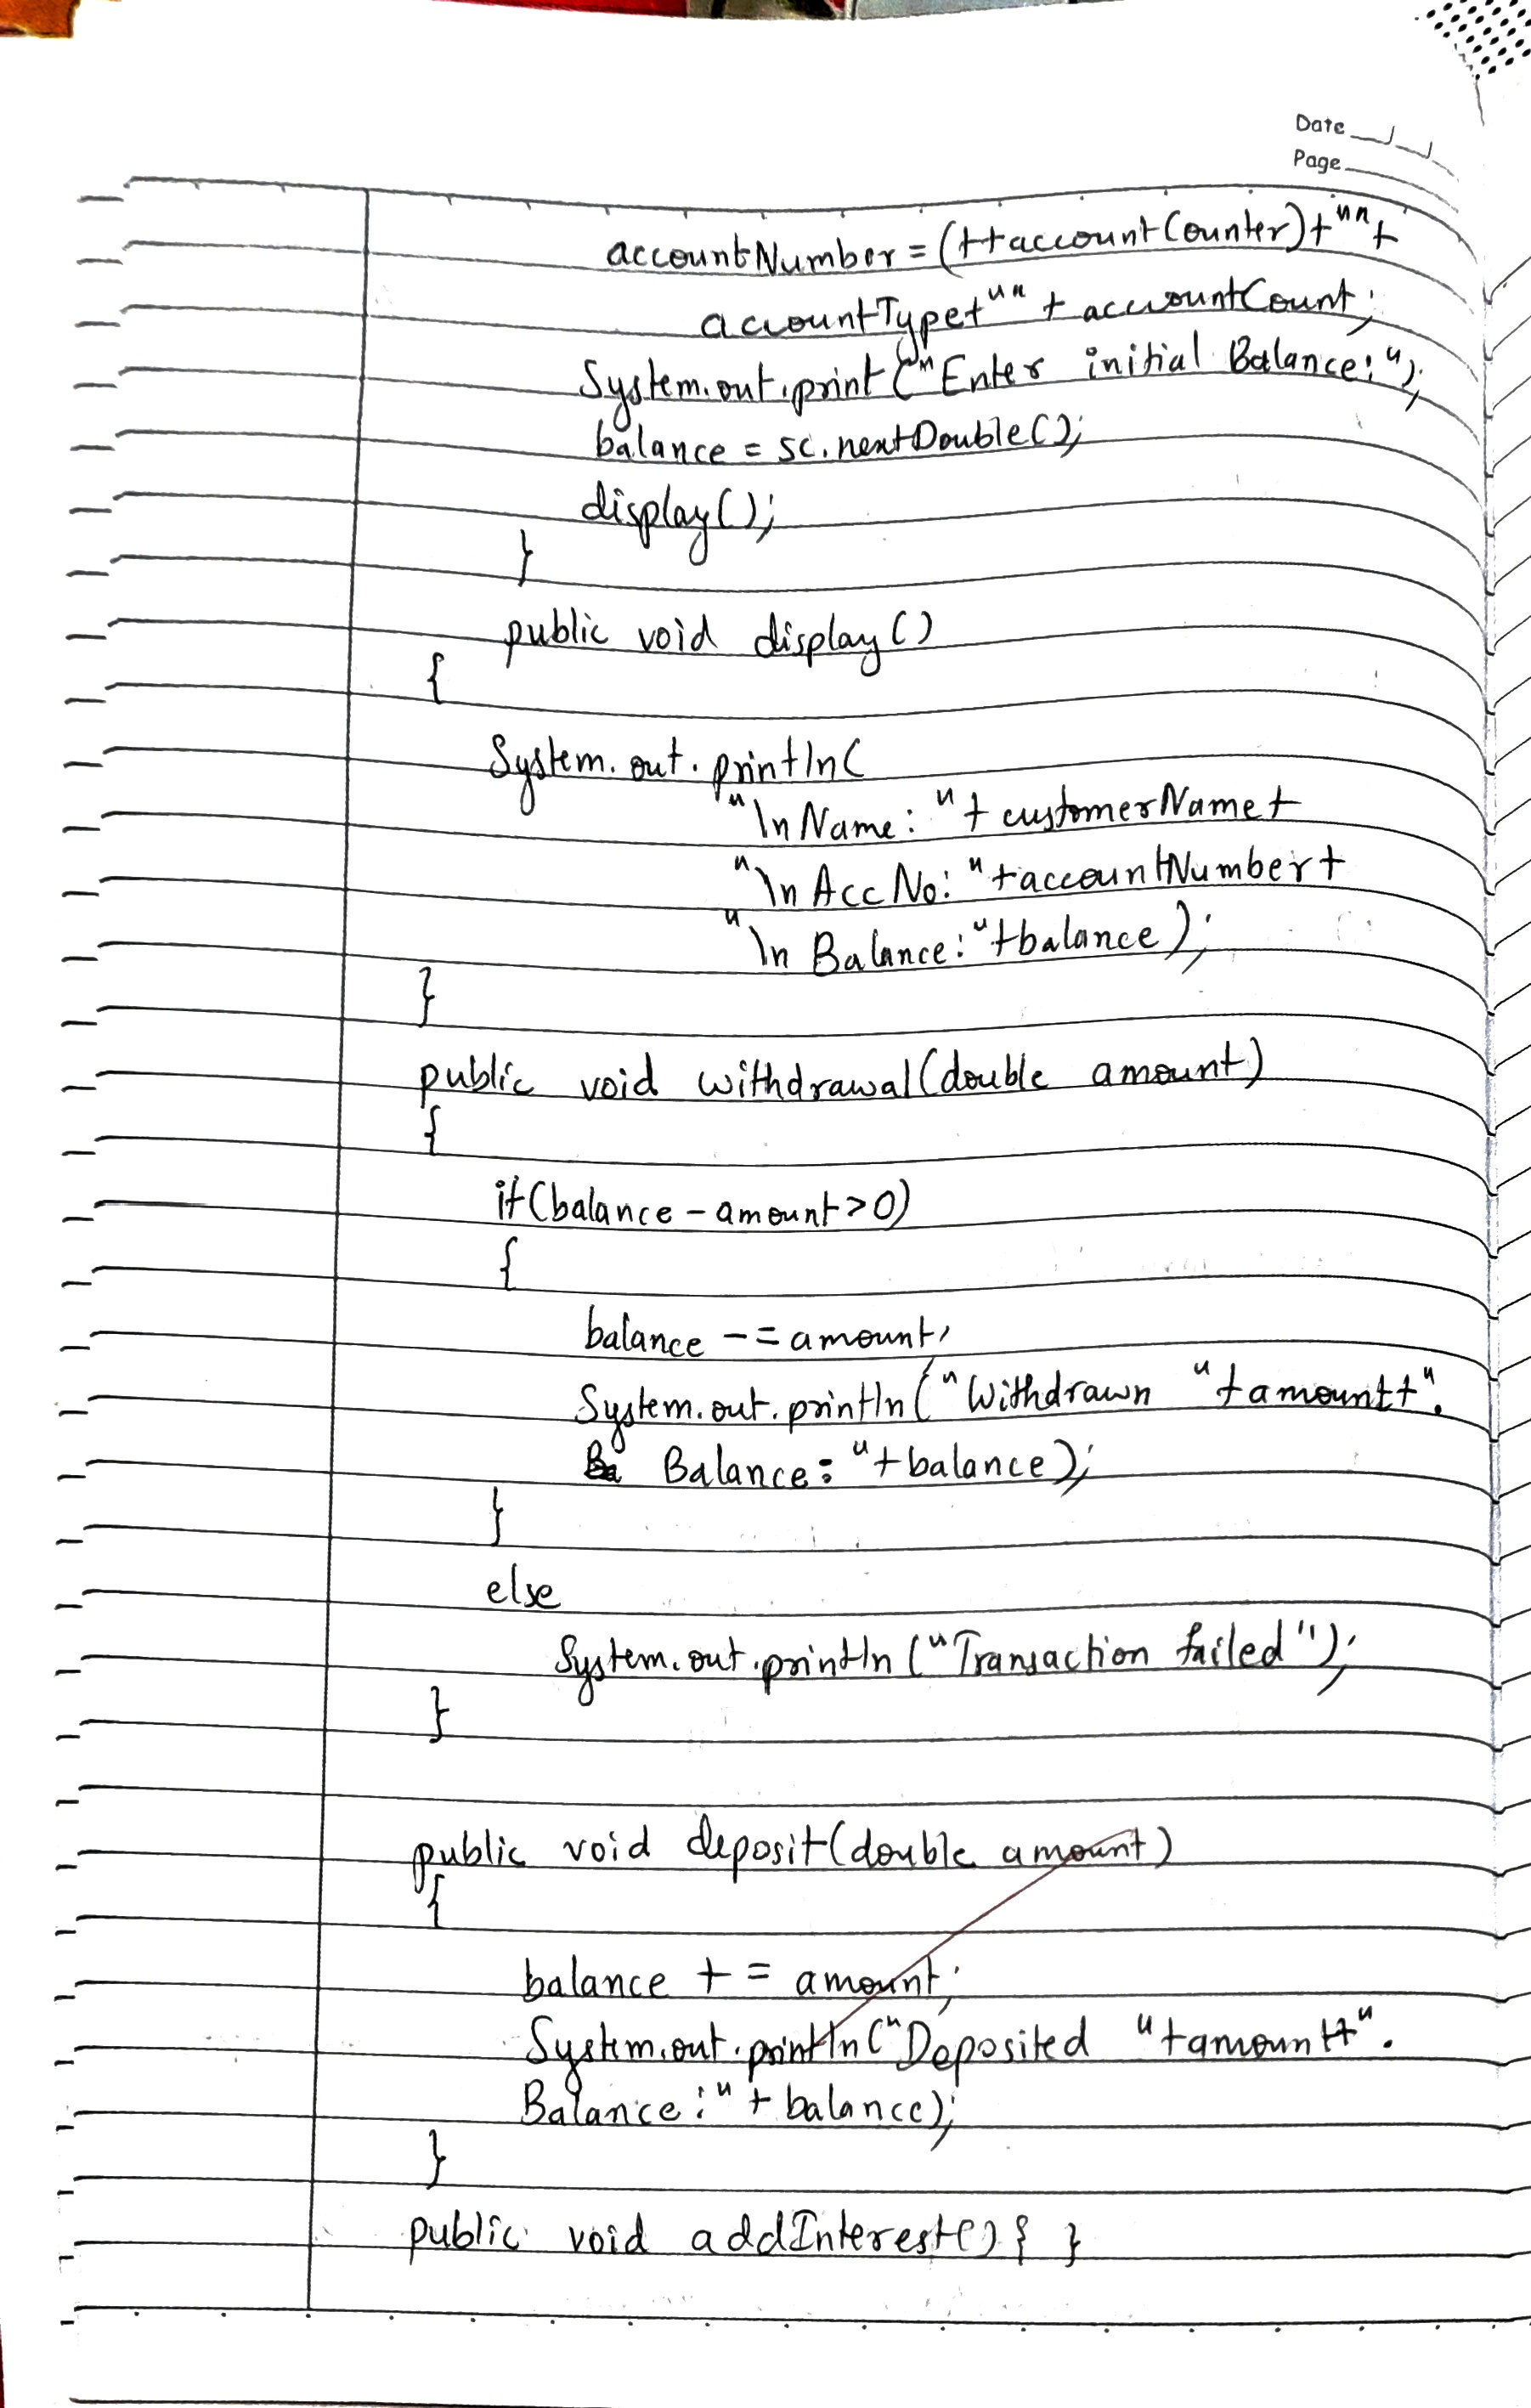 Date
Page
accountNumber = (++accountCounter)+""+
accountType+"" + accountCount;
System.out.print("Enter initial Balance:");
balance = sc.nextDouble();
display();
}
public void display()
{
System.out.println(
"\nName: "+ customerName+
"\nAcc No: "+accountNumber+
"\nBalance:"+balance);
}
public void withdrawal(double amount)
{
if(balance-amount>0)
{
balance -= amount;
System.out.println("Withdrawn "+amount+".
Balance: "+balance);
}
else
System.out.println("Transaction failed");
}
public void deposit(double amount)
{
balance += amount;
System.out.println("Deposited "+amount+".
Balance:"+ balance);
}
public void addInterest(){ }